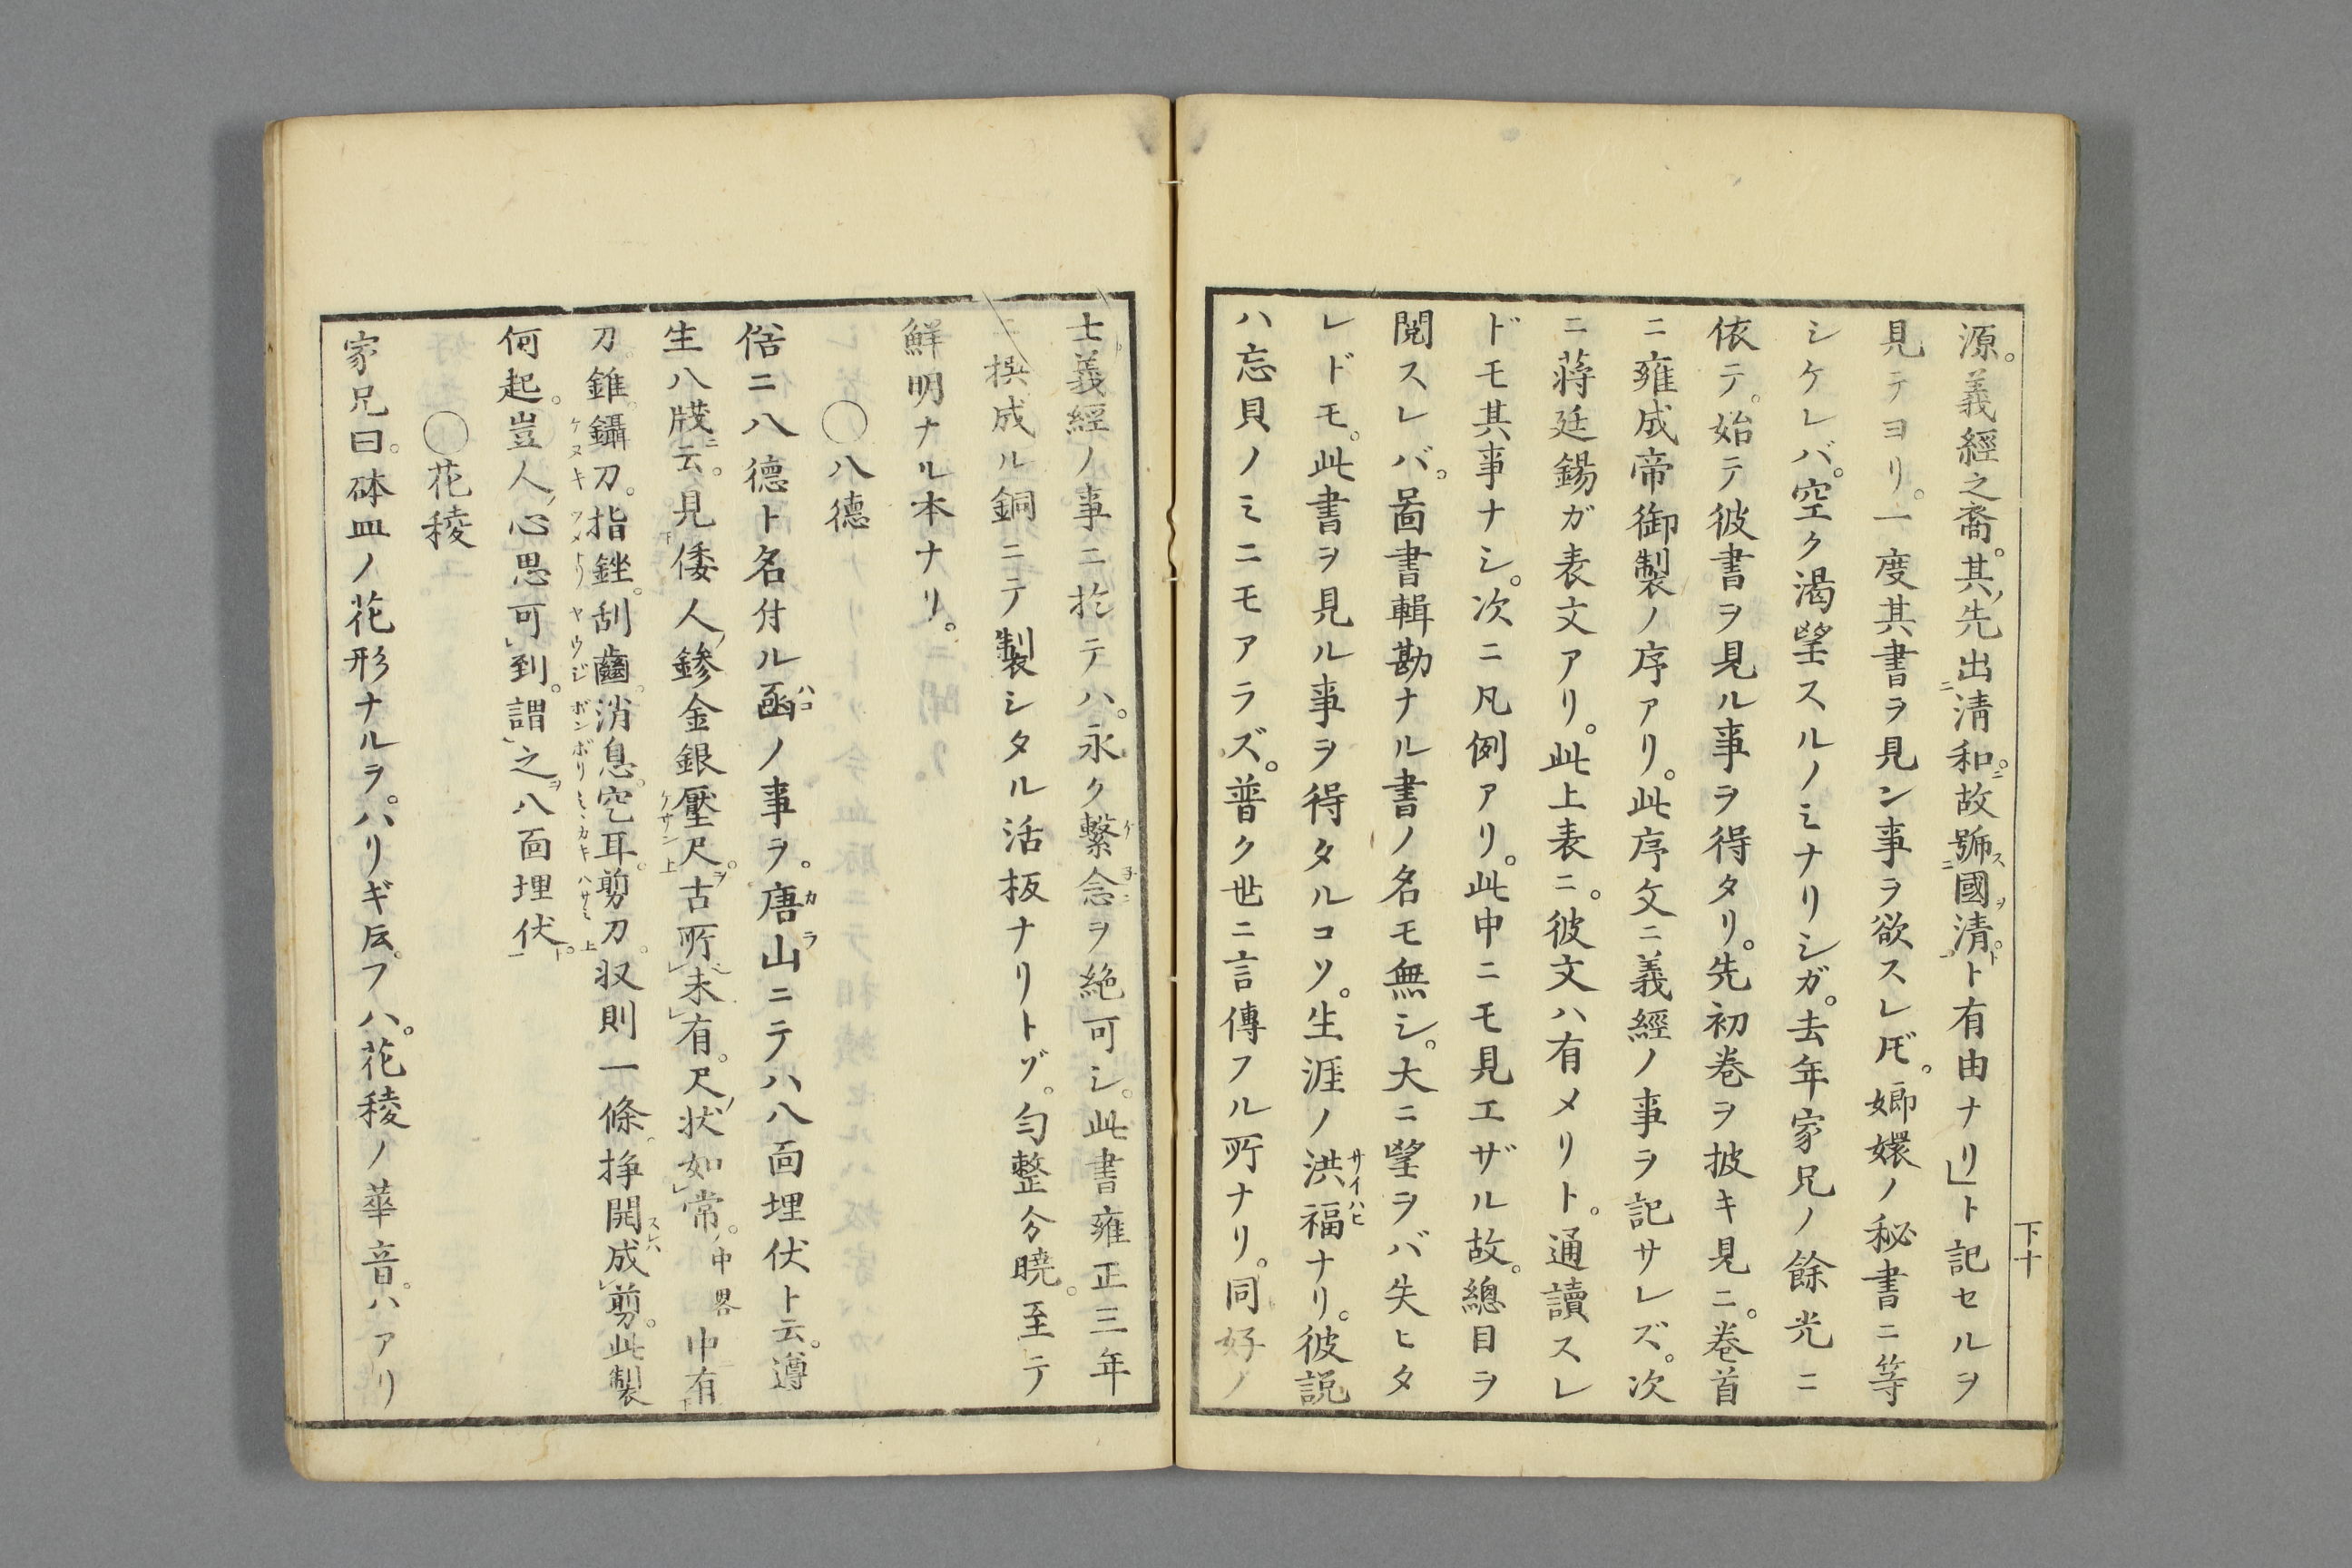 源。義經之裔。其先出清和。故號國清。ト有由ナリ」ト記セルヲ
見テヨリ。一度其書ヲ見ン事ヲ欲スレ𪜈。嫏嬛ノ秘書ニ等
シケレバ。空ク渇望スルノミナリシガ。去年家兄ノ餘光ニ
依テ。始テ彼書ヲ見ル事ヲ得タリ。先初巻ヲ披キ見ニ。巻首
ニ雍成帝御製ノ序アリ。此序文ニ義經ノ事ヲ記サレズ。次
ニ蒋廷錫ガ表文アリ。此上表ニ。彼文ハ有メリト。通讀スレ
ドモ其事ナシ。次ニ凡例アリ。此中ニモ見エザル故。總目ヲ
閲スレバ。啚書輯勘ナル書ノ名モ無シ。大ニ望ヲバ失ヒタ
レドモ。此書ヲ見ル事ヲ得タルコソ。生涯ノ洪福サイハヒナリ。彼説
ハ忘貝ノミニモアラズ。普ク世ニ言傳フル所ナリ。同好ノ
下十
士義經ノ事ニ於テハ。永ク繋念ケネンヲ絶可シ。此書雍正三年
ニ撰成ル銅ニテ製シタル活板ナリトゾ。勻整分曉。至テ
鮮明ナル本ナリ。
○八德
俗ニ八德ト名付ル函ハコノ事ヲ。唐山カラニテハ八面埋伏ト云。遵
生八牋ニ云。見倭人鏒金銀壓尺ケサンヲ。古所未有。尺状如常。中畧 中有
刀。錐。鑷刀ケヌキ。指銼ツメトリ。刮齒ヤウジ。消息ボンボリ。穵耳ミヽカキ。剪刀ハサミ。収則一條。掙開成剪。此製
何起。豈人心思可到。謂之八面埋伏。
○花稜
家兄曰。砵皿ノ花形ナルヲ。ハリギ𪜈云フハ。花稜ノ華音。ハアリ